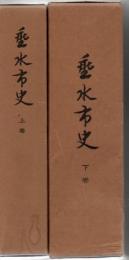 垂水市史
上巻
垂水市史
下巻